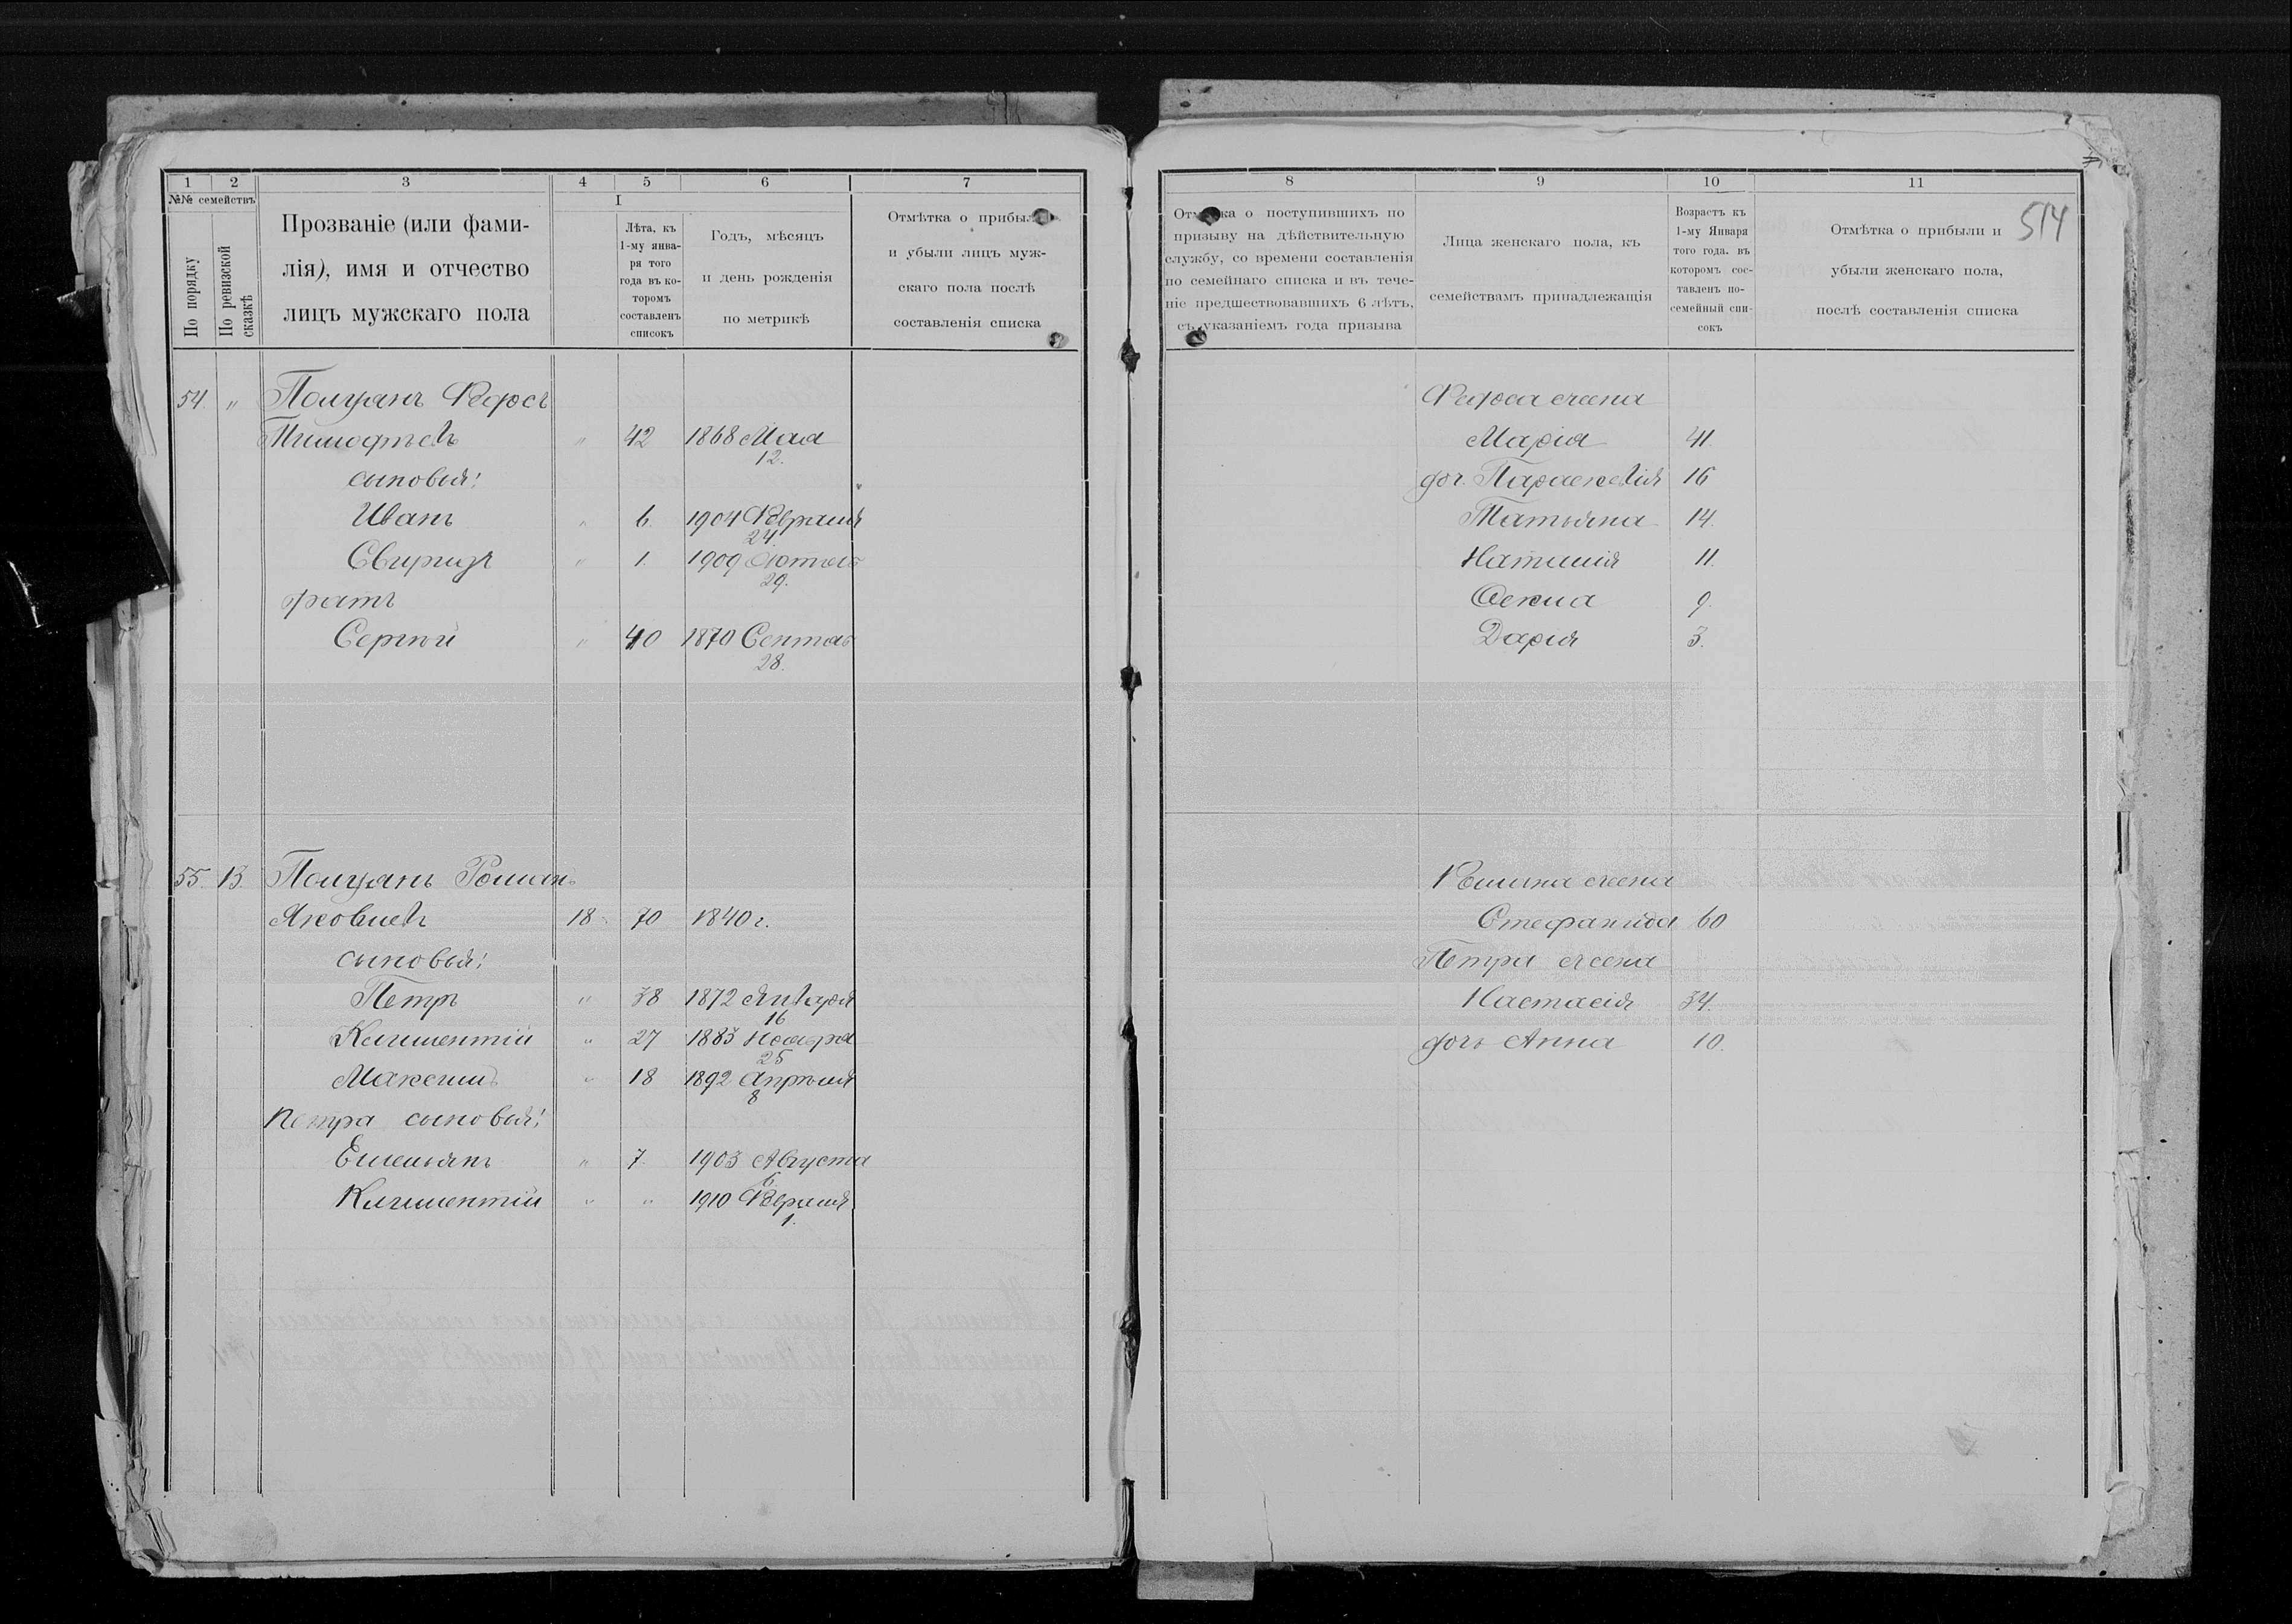 1 2 3 4 5 6 7
№№ семействъ
По порядку
По ревизской сказкѣ
Прозваніе (или фами-
лія), имя и отчество
лицъ мужскаго пола
I
Лѣта, къ
1-му янва-
ря того
года въ ко-
торомъ
составленъ
списокъ
Годъ, мѣсяцъ
и день рожденія
по метрикѣ
Отмѣтка о прибыли
и убыли лицъ муж-
скаго пола послѣ
составленія списка
54. " Полуянъ Фирсъ
Тимофѣевъ " 42 1868 Мая
12.
сыновья:
Иванъ " 6. 1904 Февраля
24.
Свиридъ " 1. 1909
29.
братъ
Сергѣй " 40 1870 Сентяб
28.
55. 13. Полуянъ Романъ
Яковлевъ 18 70 1840 г.
сыновья:
Петръ " 38 1872 Января
16
Климентій " 27 1883 Ноября
25
Максимъ " 18 1892 Апрѣля
8
Петра сыновья:
Емельянъ " 7. 1903 Августа
6
Климентій " " 1910 Февраля
1.
8 9 10 11
514
Отмѣтка о поступившихъ по
призыву на дѣйствительную
службу, со времени составленія
по семейнаго списка и въ тече-
ніе предшествовавшихъ 6 лѣтъ,
съ указаніемъ года призыва
Лица женскаго пола, къ
семействамъ принадлежащія
Возрастъ къ
1-му Января
того года. въ
которомъ сос-
тавленъ по-
семейный спи-
сокъ
Отмѣтка о прибыли и
убыли женскаго пола,
послѣ составленія списка
Фирса жена
Марія 41.
доч. Параскевія 16
Татьяна 14.
Наталія 11.
Фекла 9.
Дарія 3.
Романа жена
Стефанида 60
Петра жена
Настасія 34.
дочь Анна 10.